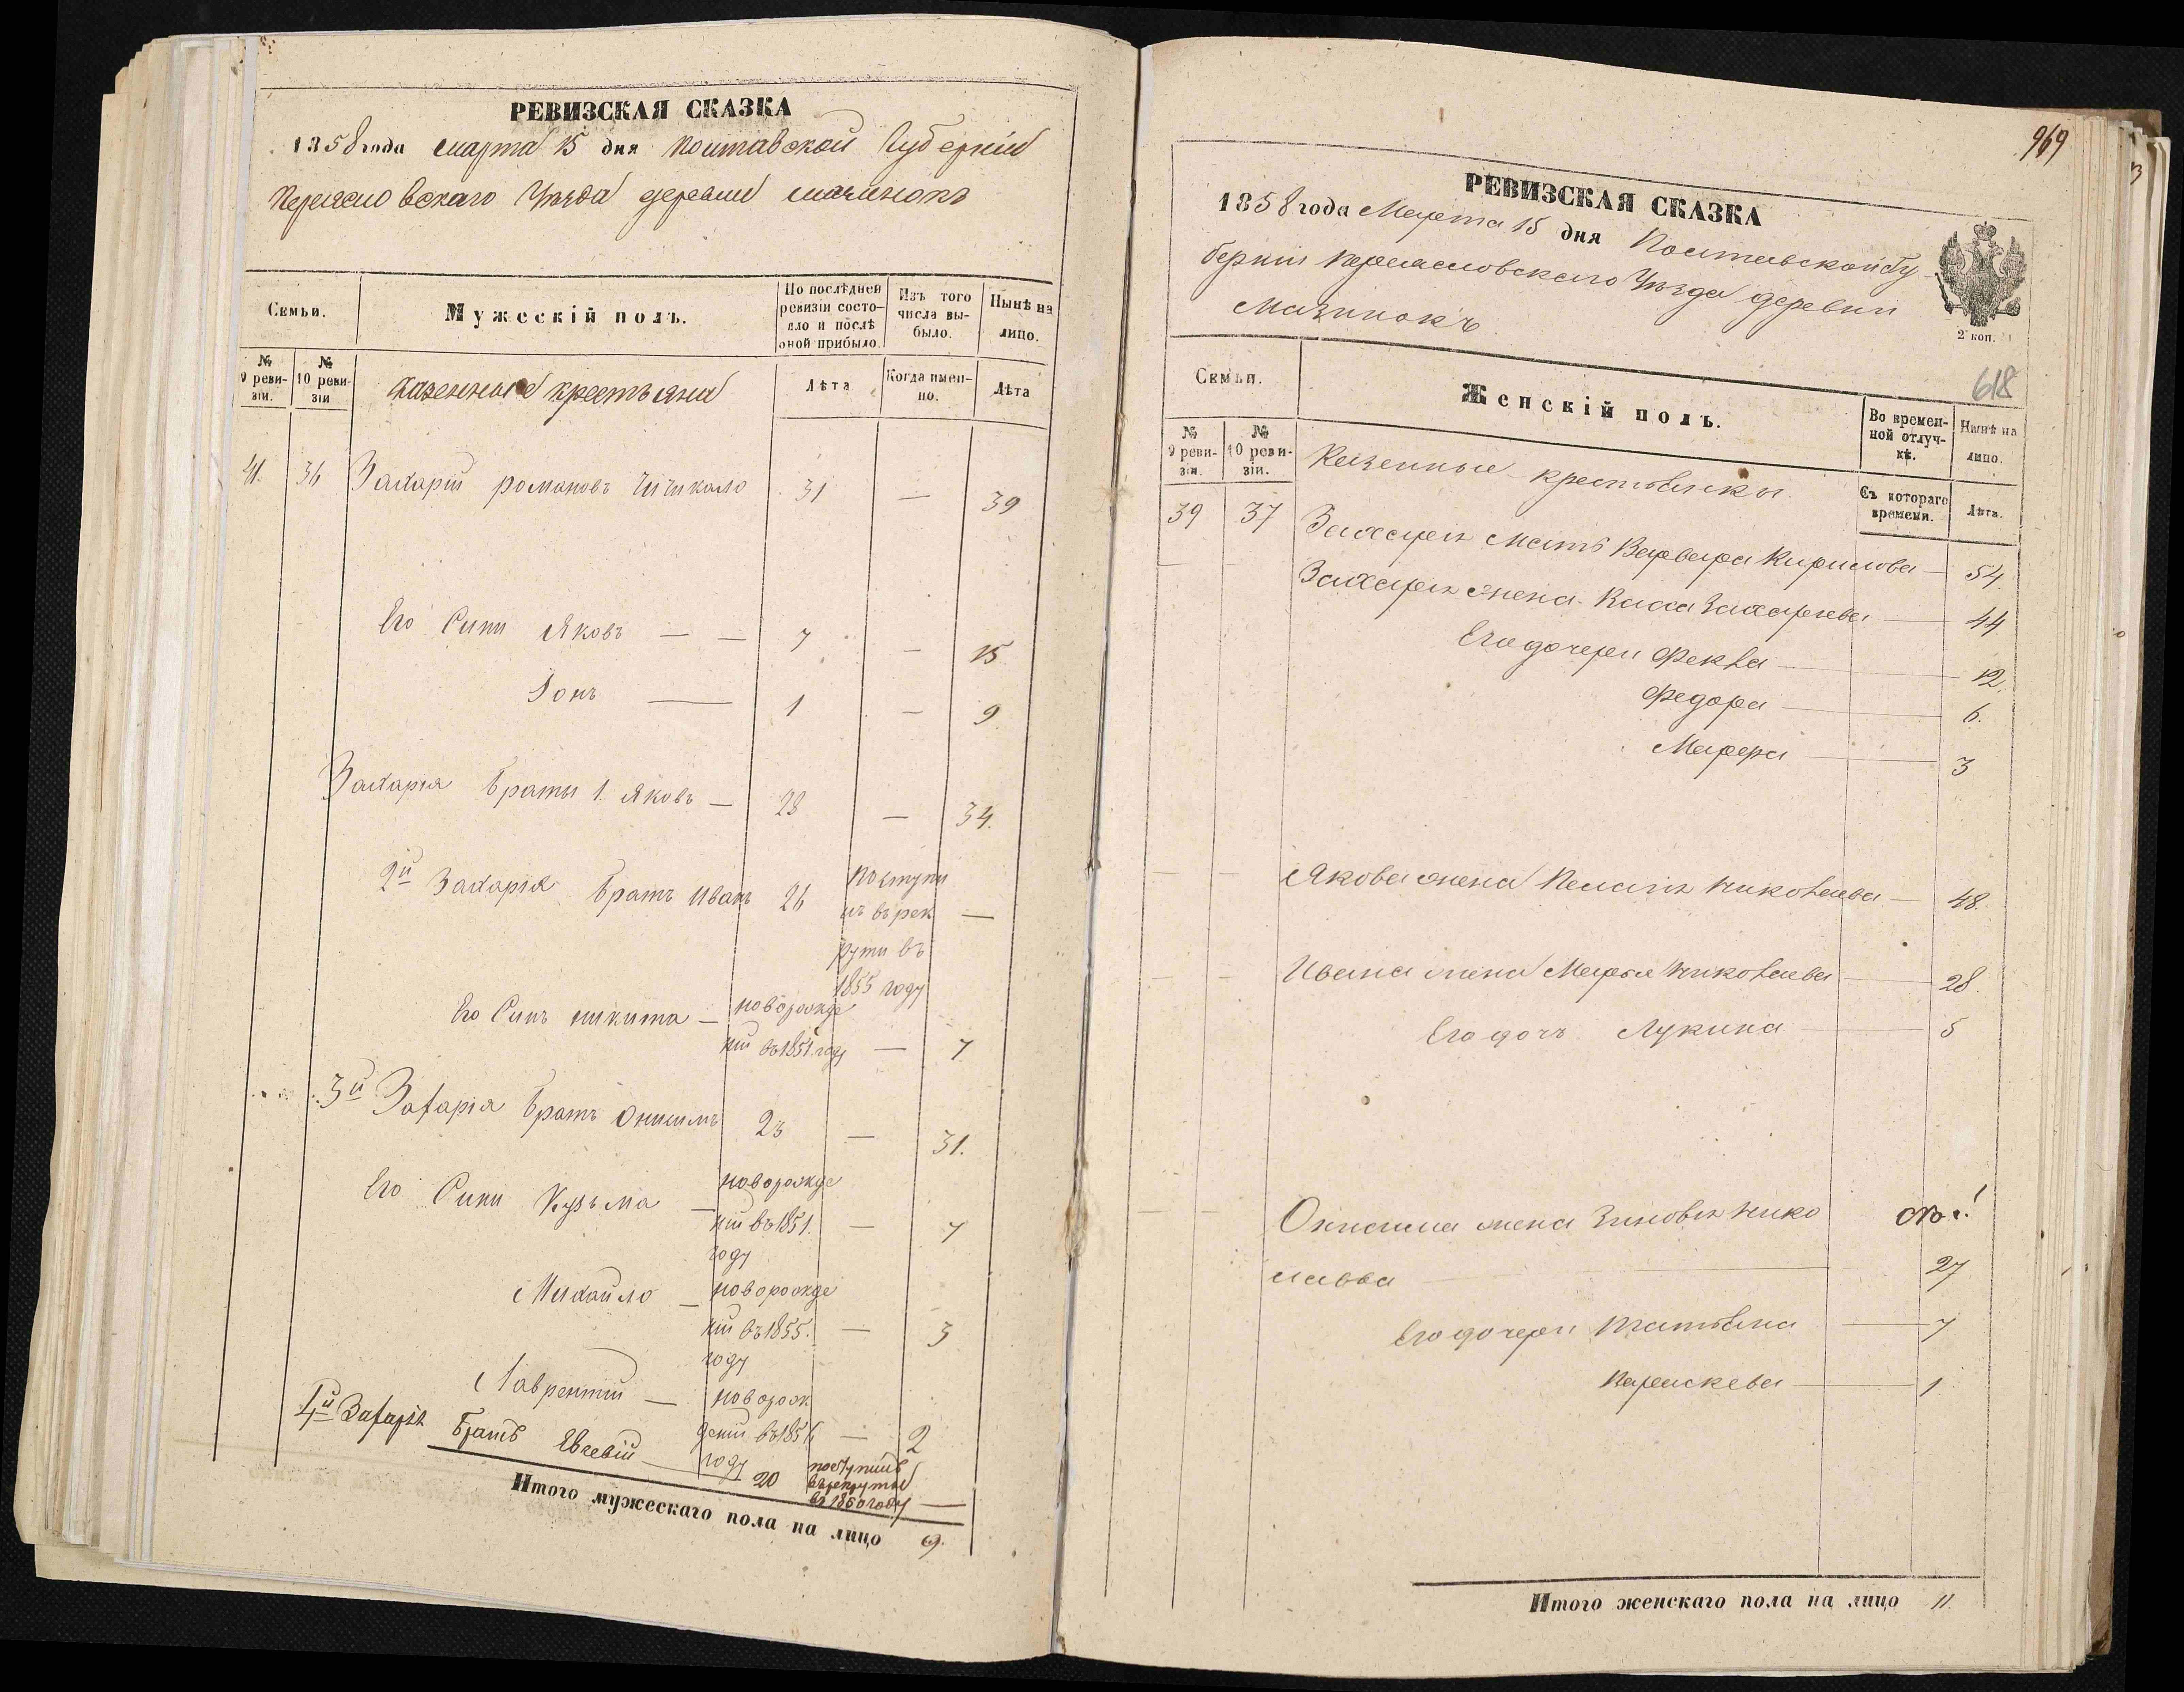 РЕВИЗСКАЯ СКАЗКА
1858 года марта 15 дня Полтавской Губерніи
Переяславского Уезда деревни
Семьи.
Мужескій полъ.
По послѣдней ревизіи состояло и послѣ оной прибыло.
Изъ того числа выбыло.
Нынѣ на лицо.
№ 9 ревизіи.
№ 10 ревизіи
казенные крестьяни
Лѣта
Когда именно.
Лѣта
41. 36 Захарій романовъ Чичкало 31 — 39
Его Сини Яковъ — — 7 — 15
Іонъ — 1 — 9
Захарія браты 1. Яковъ — — 34.
2й Захарія братъ Иванъ 26 поступилъ въ рекрути въ 1855 году —
Его Синъ никита — новорожденій въ 1851 году — 7
3й Захарія братъ Онисимъ 23 — 31.
Его Сини Кузьма — новорожденій въ 1851. году — 7
Михайло — новорожденій въ 1855. году — 3
Лаврентій — новорожденій въ 1856 году — 2
4й Захарія братъ Евсевій 20 поступилъ въ рекруты въ 1850 году —
Итого мужескаго пола на лицо 9.
969
РЕВИЗСКАЯ СКАЗКА
1858 года Марта 15 дня Полтавской Гу
берніи переясловского Уъзда деревни
Мазинокъ
2 коп.
618
Семьи.
Женскій полъ.
Во временной отлучкѣ.
Нынѣ на лицо.
№ 9 ревизіи.
№ 10 ревизіи.
Казенные крестьянки
Съ котораго времени.
Лѣта.
39 37 Захарія мать Варвара Кирилова — 54
Захарія жена Захарьева — 44
Его дочери Фекла — 12.
Федора — 6.
Марфа — 3
Якова жена Пелагія николаева — 48.
Ивана жена Марья николаева — 28.
Его дочъ Лукина — 5
Онисима жена Зиновія нико
лаева — 27
Его дочери Татьяна — 7
Параскева — 1
Итого женскаго пола на лицо 11.